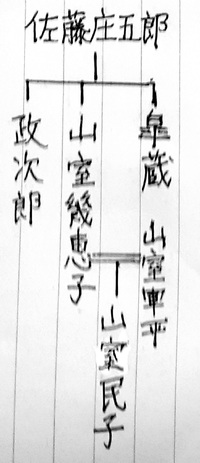 佐藤庄五郎
皐蔵
山室軍平
山室幾恵子
山室民子
政次郎